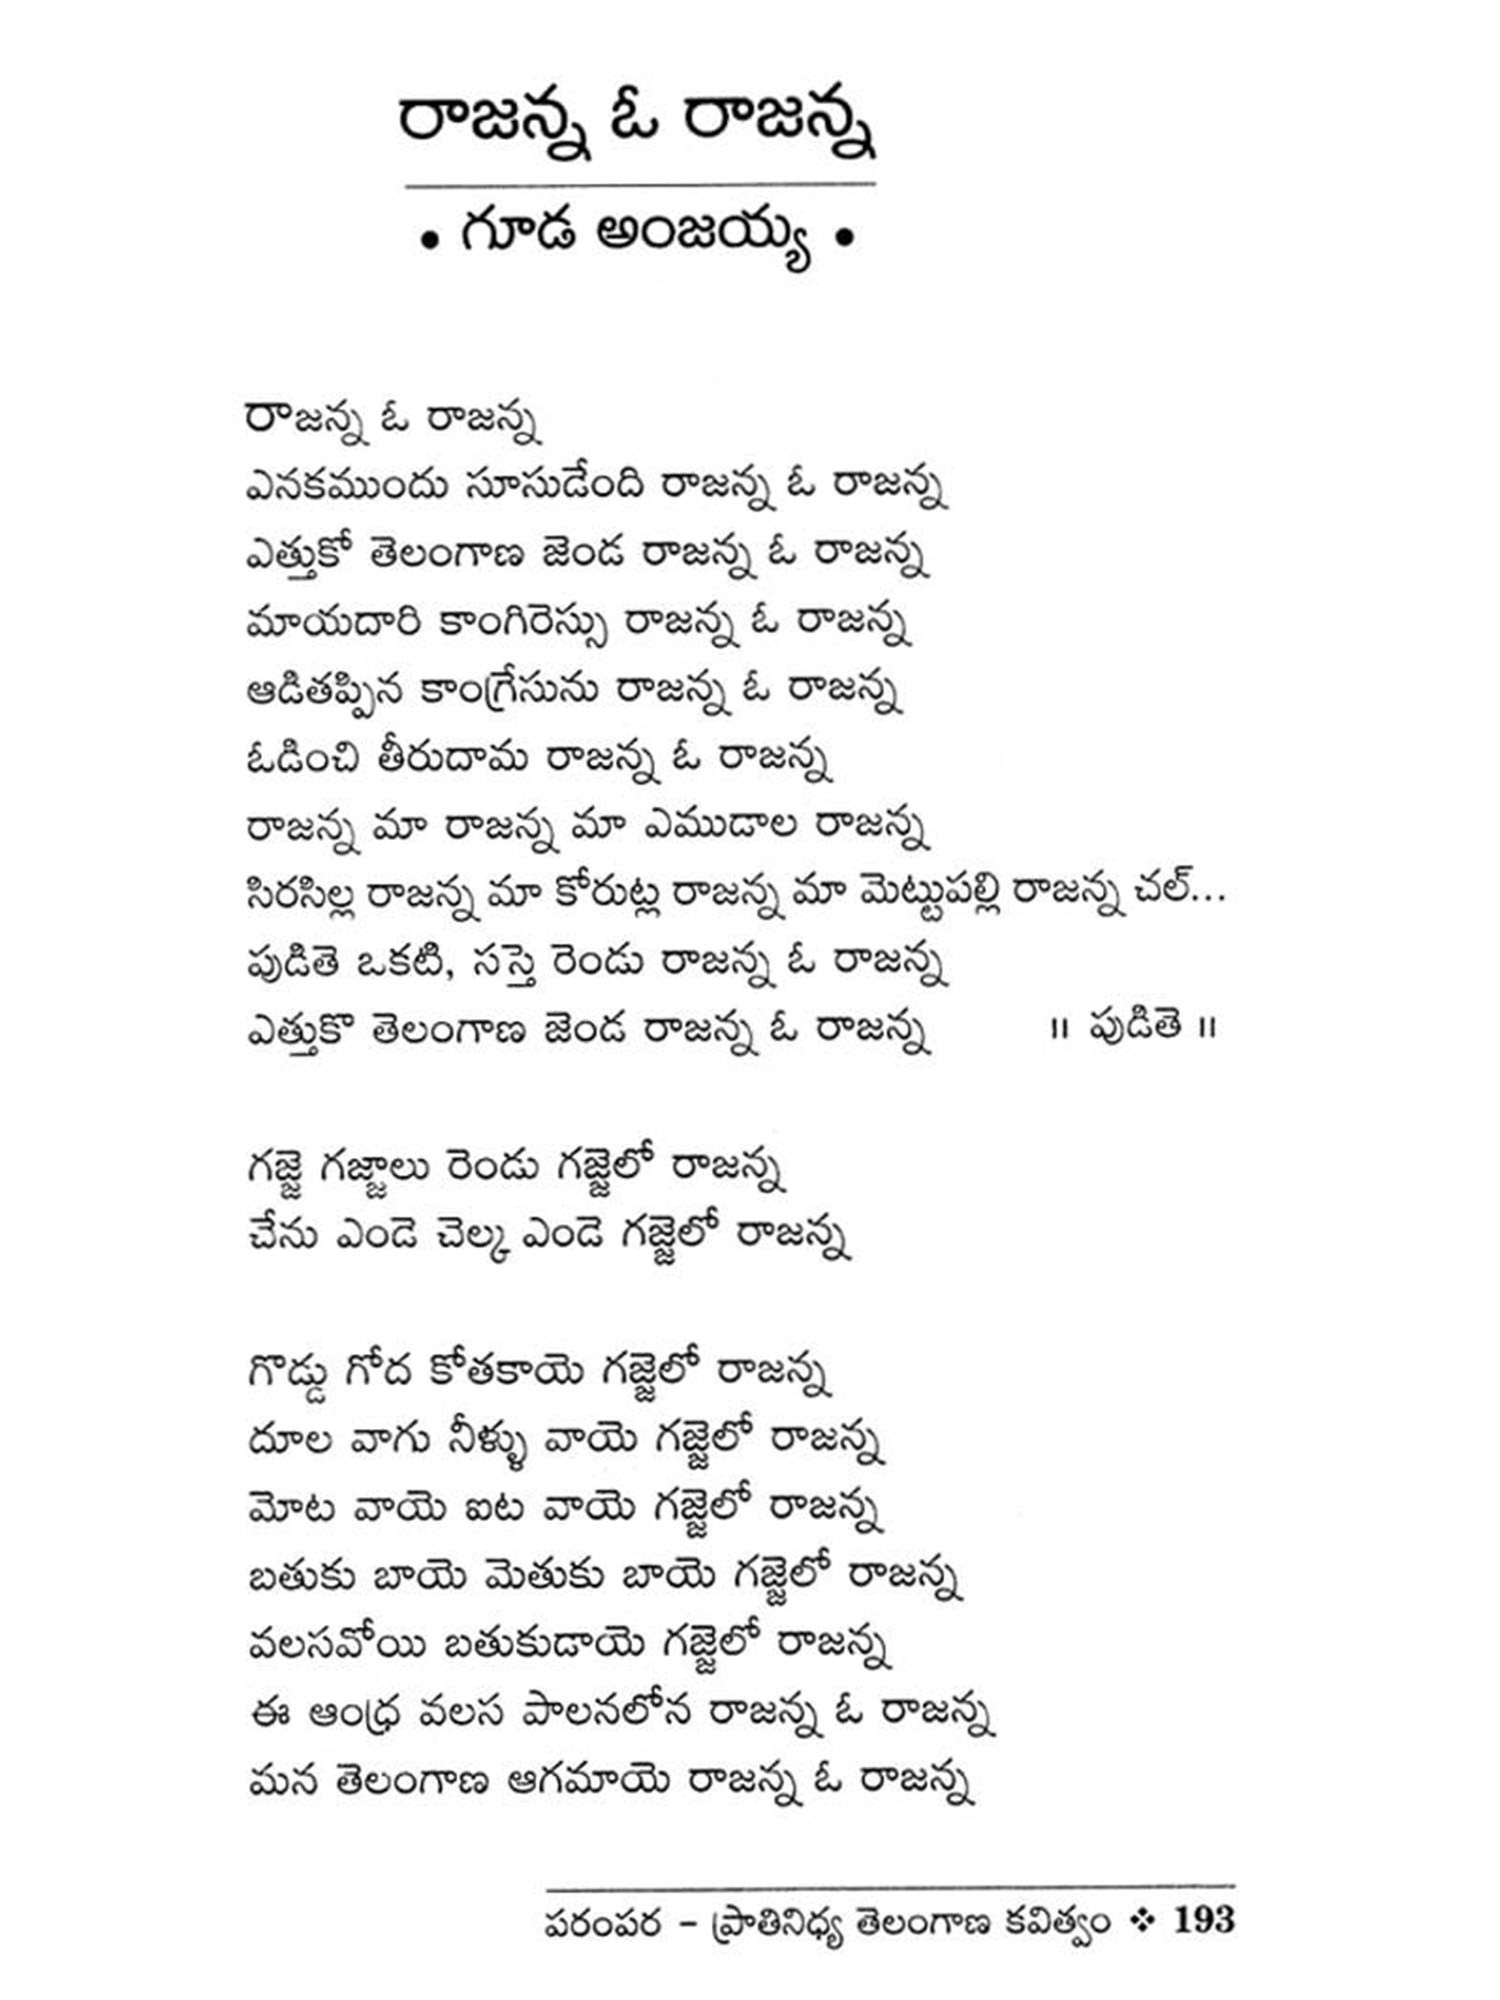 రాజన్న ఓ రాజన్న
• గూడ అంజయ్య •
రాజన్న ఓ రాజన్న
ఎనకముందు సూసుడేంది రాజన్న ఓ రాజన్న
ఎత్తుకో తెలంగాణ జెండ రాజన్న ఓ రాజన్న
మాయదారి కాంగిరెస్సు రాజన్న ఓ రాజన్న
ఆడితప్పిన కాంగ్రేసును రాజన్న ఓ రాజన్న
ఓడించి తీరుదామ రాజన్న ఓ రాజన్న
రాజన్న మా రాజన్న మా ఎముడాల రాజన్న
సిరసిల్ల రాజన్న మా కోరుట్ల రాజన్న మా మెట్టుపల్లి రాజన్న చల్...
పుడితె ఒకటి, సస్తె రెండు రాజన్న ఓ రాజన్న
ఎత్తుకొ తెలంగాణ జెండ రాజన్న ఓ రాజన్న ॥ పుడితె ॥
గజ్జె గజ్జాలు రెండు గజ్జెలో రాజన్న
చేను ఎండె చెల్క ఎండె గజ్జెలో రాజన్న
గొడ్డు గోద కోతకాయె గజ్జెలో రాజన్న
దూల వాగు నీళ్ళు వాయె గజ్జెలో రాజన్న
మోట వాయె ఐట వాయె గజ్జెలో రాజన్న
బతుకు బాయె మెతుకు బాయె గజ్జెలో రాజన్న
వలసవోయి బతుకుడాయె గజ్జెలో రాజన్న
ఈ ఆంధ్ర వలస పాలనలోన రాజన్న ఓ రాజన్న
మన తెలంగాణ ఆగమాయె రాజన్న ఓ రాజన్న
పరంపర - ప్రాతినిధ్య తెలంగాణ కవిత్వం ❖ 193